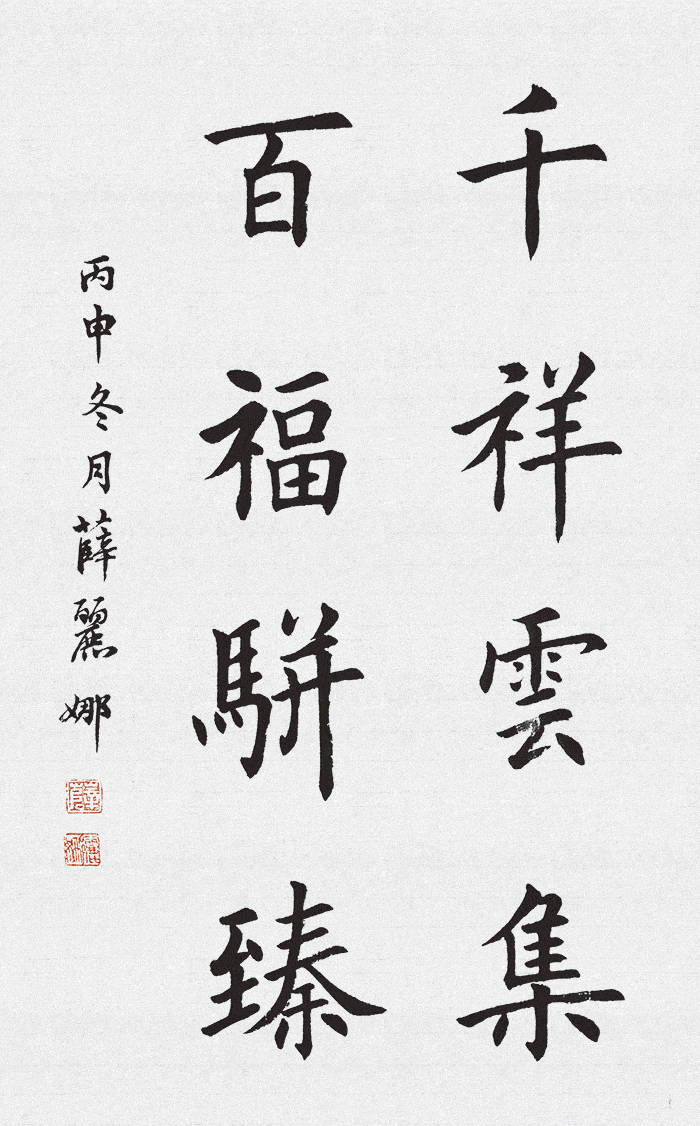 千祥雲集
百福駢臻
丙申冬月薛麗娜